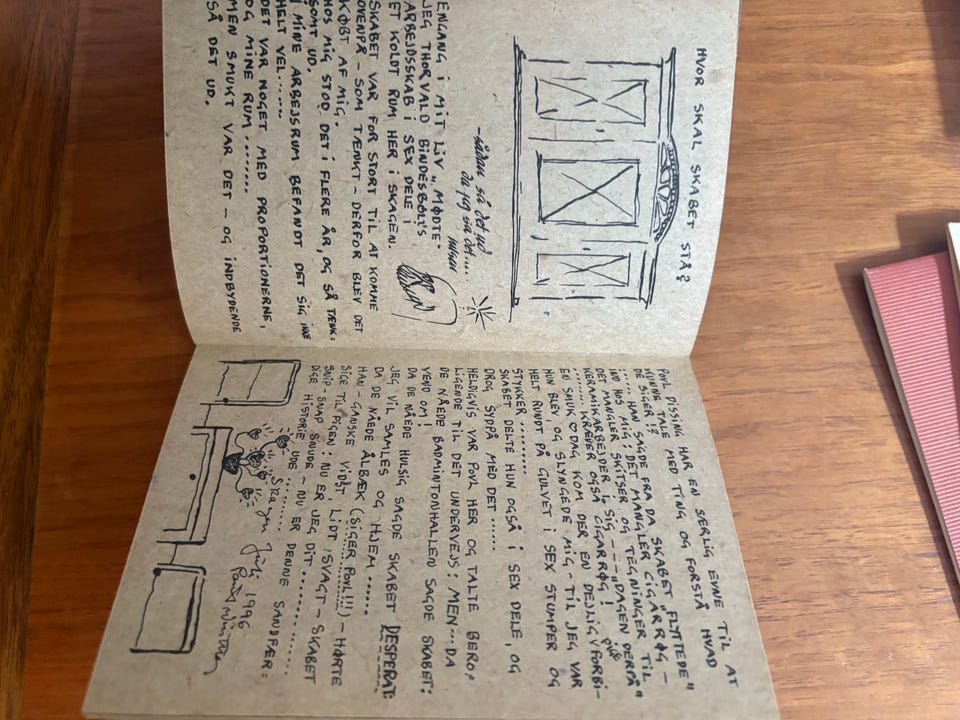 HVOR SKAL SKABET STÅ?
- sådan så det ud
da jeg så det....
ENGANG I MIT LIV "MØDTE"
JEG THORVALD BINDESBØLL'S
ARBEJDSSKAB I SEX DELE I
ET KOLDT RUM HER I SKAGEN.
SKABET VAR FOR STORT TIL AT KOMME
OVENPÅ - SOM TÆNKT - DERFOR BLEV DET
KØBT AF MIG.
HOS MIG STOD DET I FLERE ÅR, OG SÅ TÆNK:
SOMT UD.
I MINE ARBEJSRUM BEFANDT DET SIG IKKE
HELT VEL......
DET VAR NOGET MED PROPORTIONERNE,
OG MINE RUM........
MEN SMUKT VAR DET - OG INDBYDENDE
SÅ DET UD.
POVL DISSING HAR EN SÆRLIG EVNE TIL AT
KUNNE TALE MED TING OG FORSTÅ HVAD
DE SIGER!!?
...... HAN SAGDE FRA DA SKABET "FLYTTEDE"
IND HOS MIG: DET MANGLER CIGARRØG -
DET MANGLER SKITSER OG TEGNINGER TIL
KERAMIKARBEJDER I SIG --- "DAGEN DERPÅ"
....... KRÆVER OGSÅ CIGARRØG!
EN SMUK DAG KOM DER EN DEJLIG FORBI-
HUN BLEV OG SLYNGEDE MIG - TIL JEG VAR
HELT RUNDT PÅ GULVET I SEX STUMPER OG
STYKKER.........
SKABET DELTE HUN OGSÅ I SEX DELE, OG
DROG SYDPÅ MED DET......
HELDIGVIS VAR POVL HER OG TALTE BERO:
LIGENDE TIL DET UNDERVEJS: MEN---DA
DE NÅEDE BADMINTONHALLEN SAGDE SKABET:
VEND OM!
DA DE NÅEDE HULSIG SAGDE SKABET DESPERAT:
JEG VIL SAMLES OG HJEM.......
DA DE NÅEDE ÅLBÆK (SIGER POVL!!!) - HØRTE
HAN - GANSKE VIDST, LIDT SVAGT - SKABET
SIGE TIL PIGEN: NU ER JEG DIT...........
SNIP-SNAP SNUDE - NU ER DENNE SANDFÆR=
DIGE HISTORIE UDE.........
Skagen Juli 1996